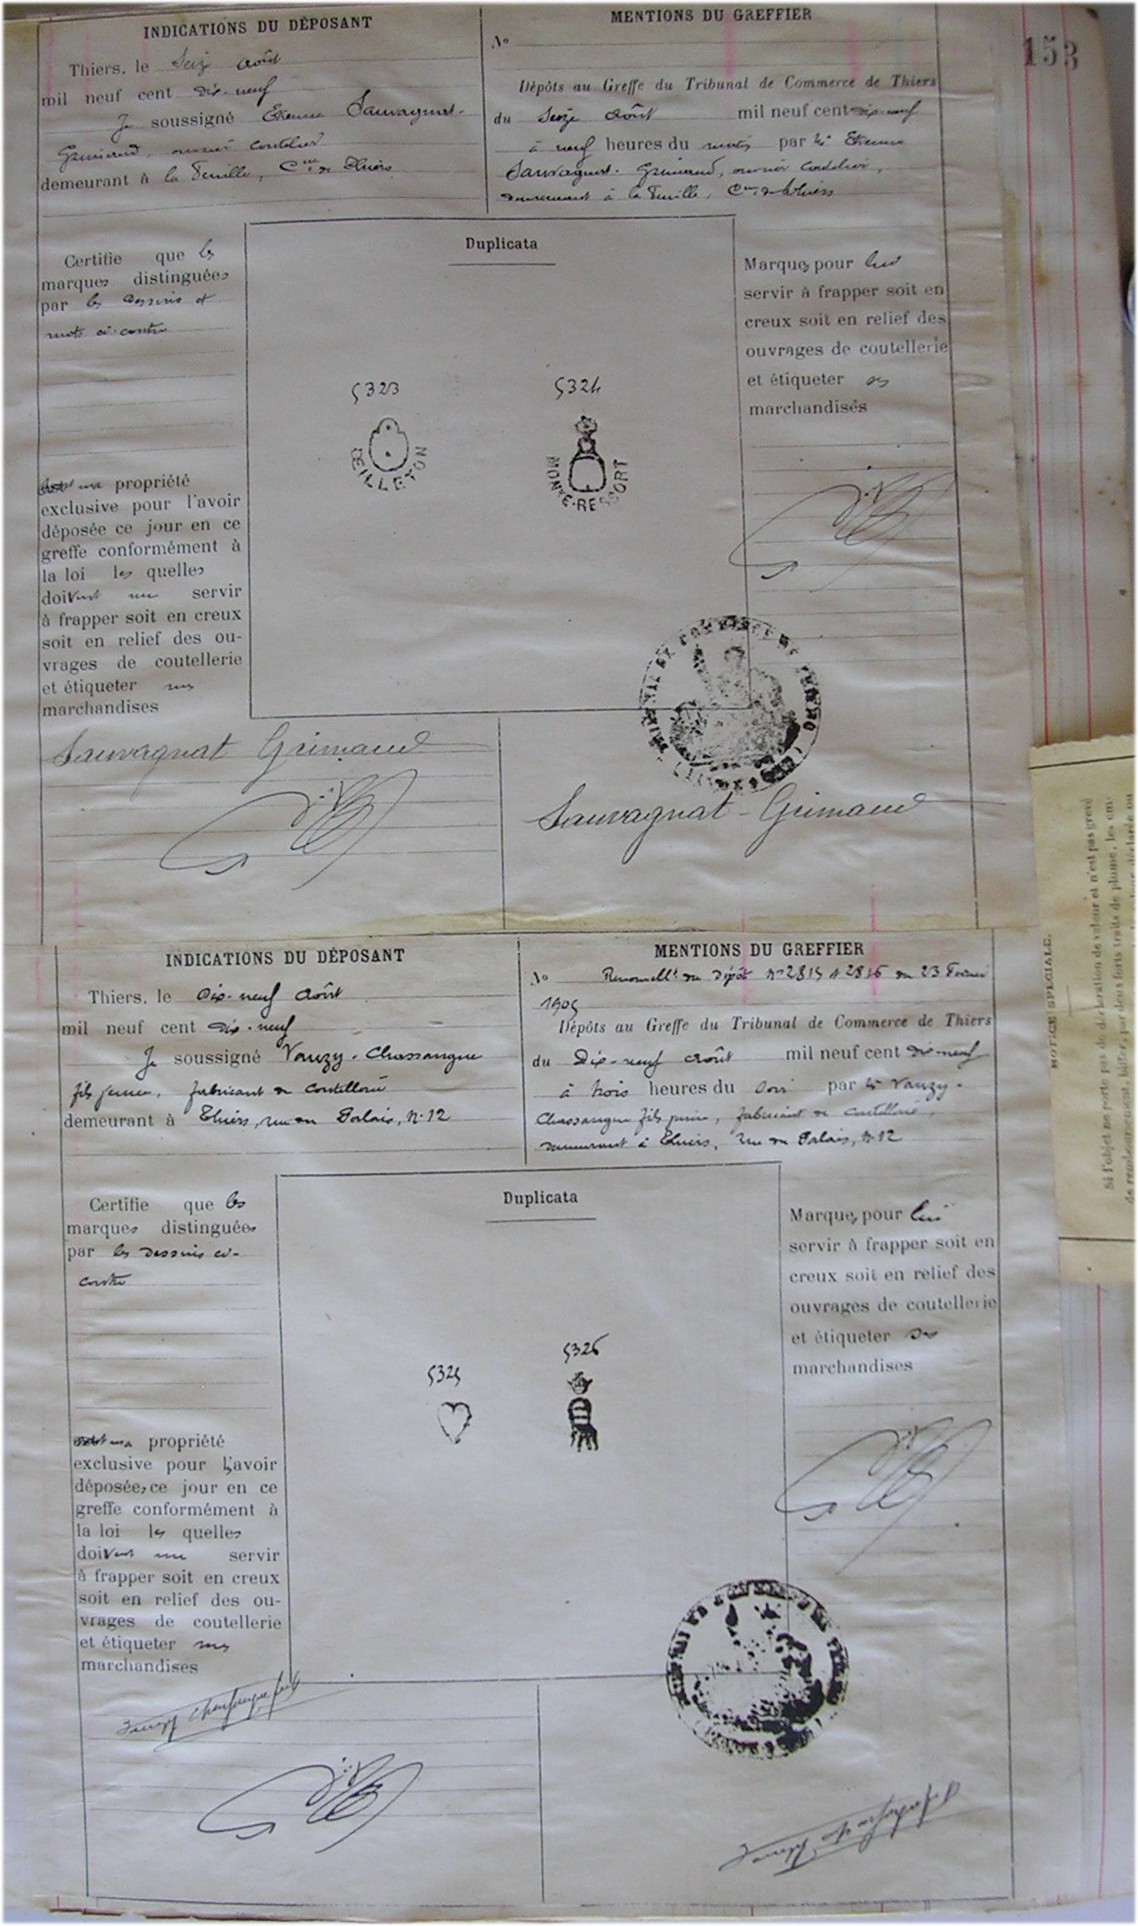 153
INDICATIONS DU DÉPOSANT
Thiers, le Seize Août
mil neuf cent dix-neuf
Je soussigné Etienne Sauvagnat-
Grimaud, ouvrier coutelier
demeurant à la Venille, Cne de Thiers
MENTIONS DU GREFFIER
No
Dépôts au Greffe du Tribunal de Commerce de Thiers
du Seize Août mil neuf cent dix-neuf
à neuf heures du matin par Mr Etienne
Sauvagnat-Grimaud, ouvrier coutelier,
demeurant à la Venille, Cne de Thiers
Certifie que les
marques distinguées
par les dessins et
mots ci-contre
propriété
exclusive pour l'avoir
déposée ce jour en ce
greffe conformément à
la loi les quelles
doivent me servir
à frapper soit en creux
soit en relief des ou-
vrages de coutellerie
et étiqueter mes
marchandises
Duplicata
5323
5324
ŒILLETON
MONTE-RESSORT
Marques pour lui
servir à frapper soit en
creux soit en relief des
ouvrages de coutellerie
et étiqueter ses
marchandises
Sauvagnat Grimaud
Sauvagnat-Grimaud
INDICATIONS DU DÉPOSANT
Thiers, le Dix-neuf Août
mil neuf cent dix-neuf
Je soussigné Vauzy-Chassangue
fils jeune, fabricant de coutellerie
demeurant à Thiers, rue du Palais, No 12
MENTIONS DU GREFFIER
No Renouvellt du dépôt nos 2815 et 2816 du 23 Février
1905
Dépôts au Greffe du Tribunal de Commerce de Thiers
du Dix-neuf Août mil neuf cent dix-neuf
à trois heures du soir par Mr Vauzy-
Chassangue fils jeune, fabricant de coutellerie,
demeurant à Thiers, rue du Palais, No 12
Certifie que les
marques distinguées
par les dessins ci-
contre
propriété
exclusive pour l'avoir
déposées ce jour en ce
greffe conformément à
la loi les quelles
doivent me servir
à frapper soit en creux
soit en relief des ou-
vrages de coutellerie
et étiqueter mes
marchandises
Duplicata
5325
5326
Marques pour lui
servir à frapper soit en
creux soit en relief des
ouvrages de coutellerie
et étiqueter ses
marchandises
NOTICE SPÉCIALE.
Si l'objet ne porte pas de déclaration de valeur et n'est pas grevé
de remboursement, biffer, par deux forts traits de plume, les